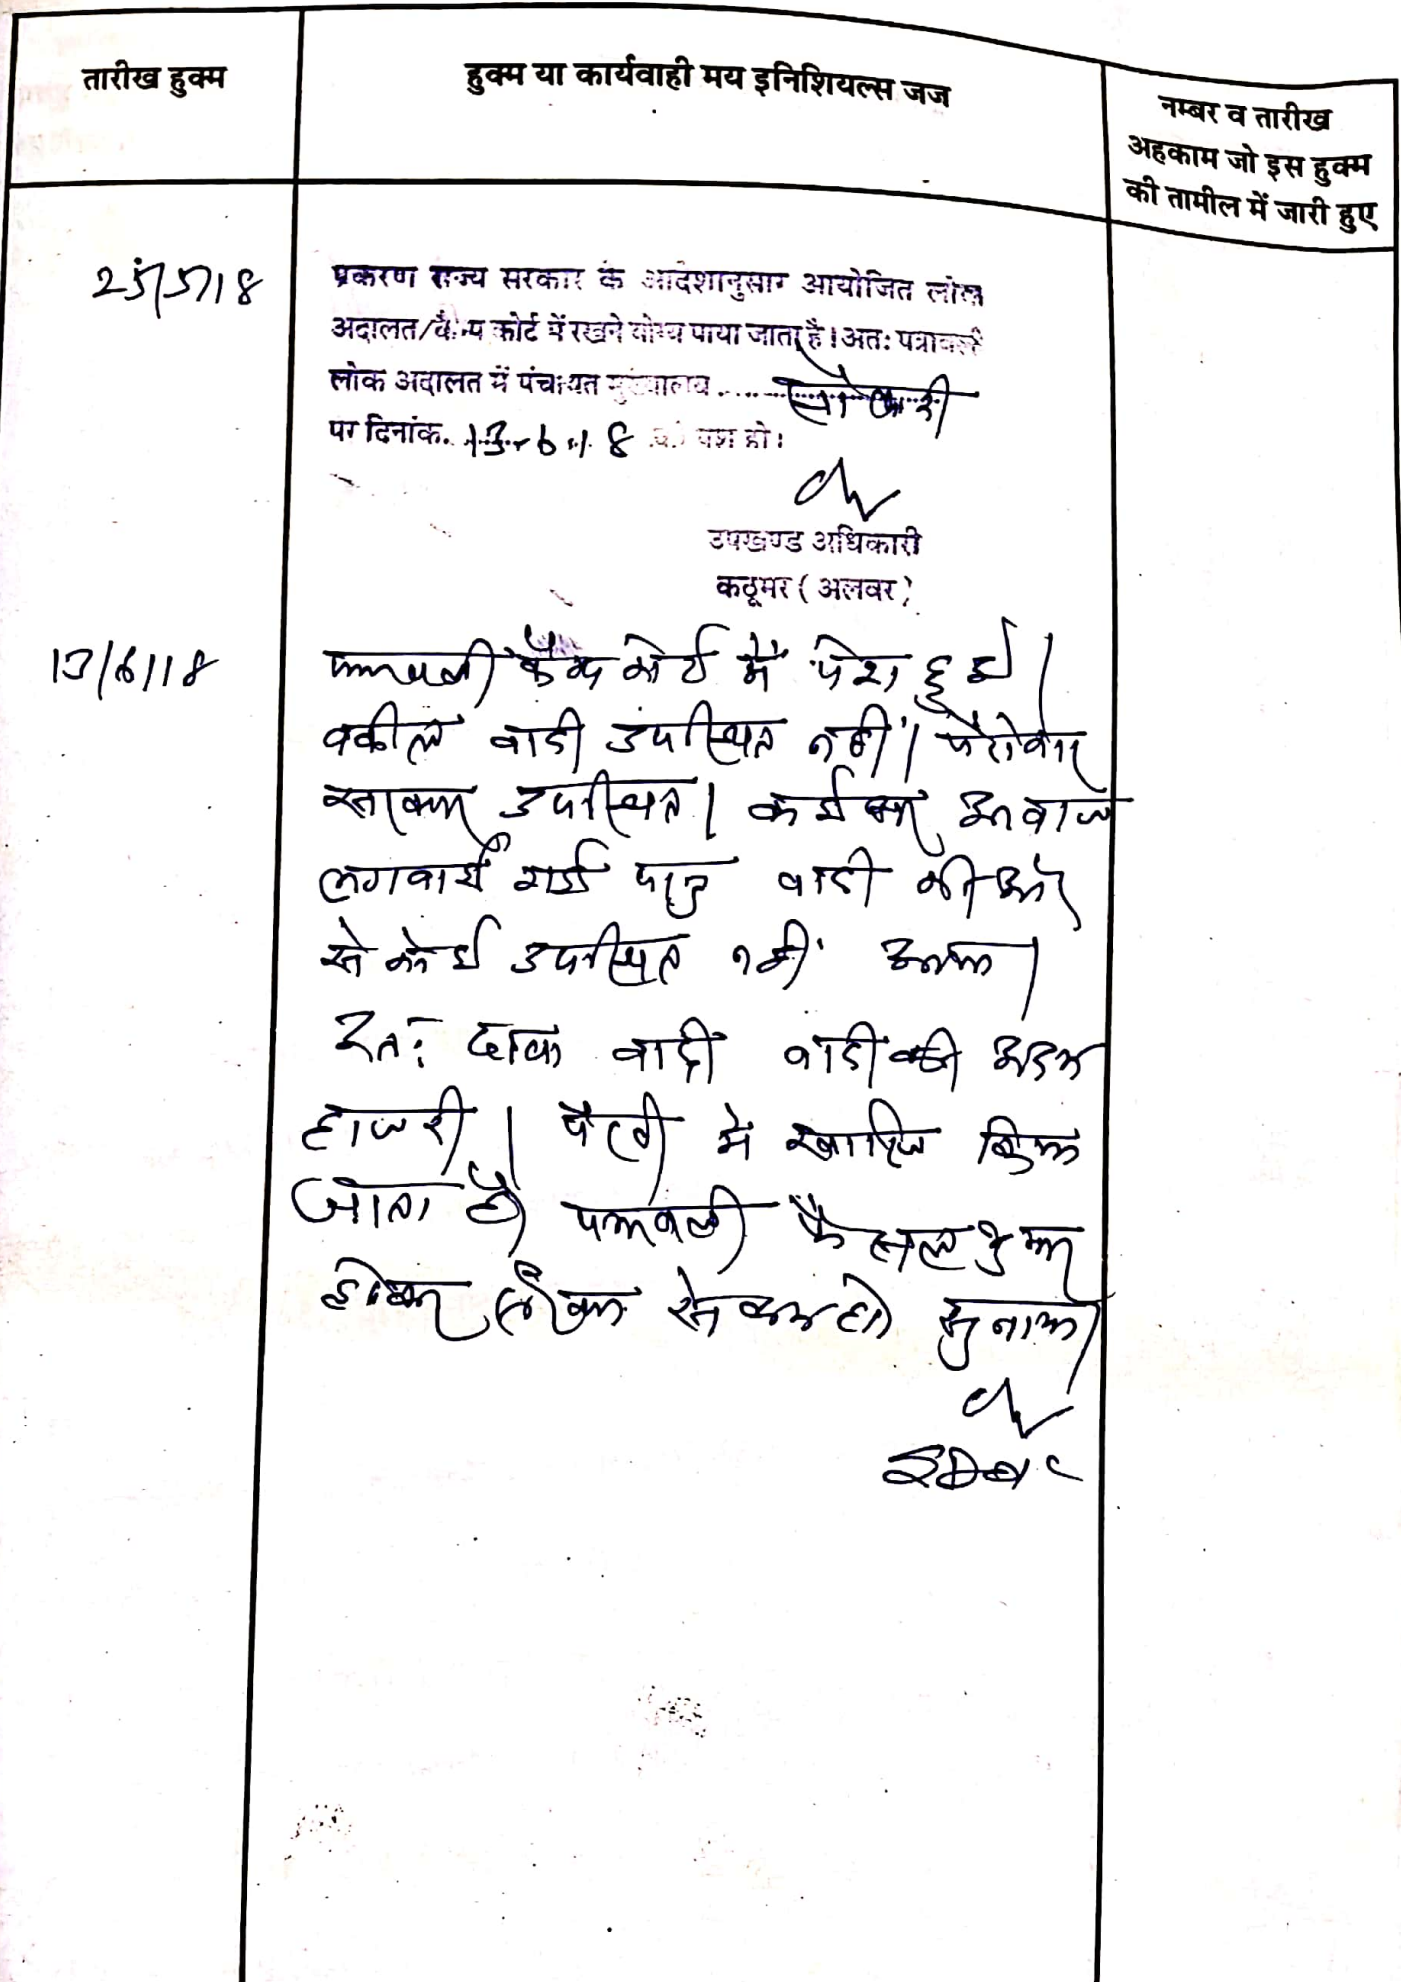 तारीख हुक्म
हुक्म या कार्यवाही मय इनिशियल्स जज
नम्बर व तारीख
अहकाम जो इस हुक्म
की तामील में जारी हुए
25/5/18
प्रकरण राज्य सरकार के आदेशानुसार आयोजित लोक
अदालत/कैम्प कोर्ट में रखने योग्य पाया जाता है। अतः पत्रावली
लोक अदालत में पंचायत मुख्यालय ........ सौंखरी
पर दिनांक. 13-6-18 को पेश हो।
उपखण्ड अधिकारी
कठूमर (अलवर)
13/6/18
पत्रावली कैम्प कोर्ट में पेश हुई।
वकील वादी उपस्थित नहीं। पैरोकार
सरकार उपस्थित। कई बार आवाज
लगवाई गई परन्तु वादी की ओर
से कोई उपस्थित नहीं आया।
अतः वाद वादी वादी की अदम
हाजरी। पैरवी में खारिज किया
जाता है। पत्रावली फैसल शुमार
होकर नम्बर से कम हो। सुनाया।